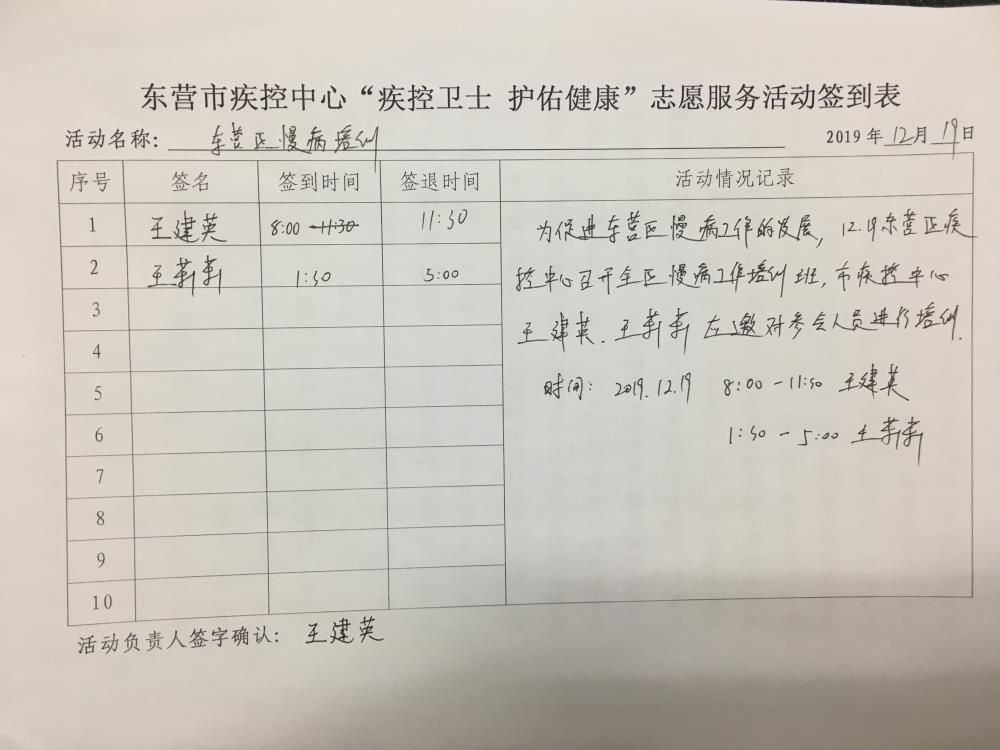 东营市疾控中心“疾控卫士 护佑健康”志愿服务活动签到表
活动名称: 东营区慢病培训 2019年12月19日
序号 签名 签到时间 签退时间 活动情况记录
1 王建英 8:00 11:30 11:30
2 王莉莉 1:30 5:00
3
4
5
6
7
8
9
10
为促进东营区慢病工作的发展, 12.19东营区疾
控中心召开全区慢病工作培训班, 市疾控中心
王建英. 王莉莉 应邀对参会人员进行培训.
时间: 2019.12.19 8:00-11:30 王建英
1:30-5:00 王莉莉
活动负责人签字确认: 王建英